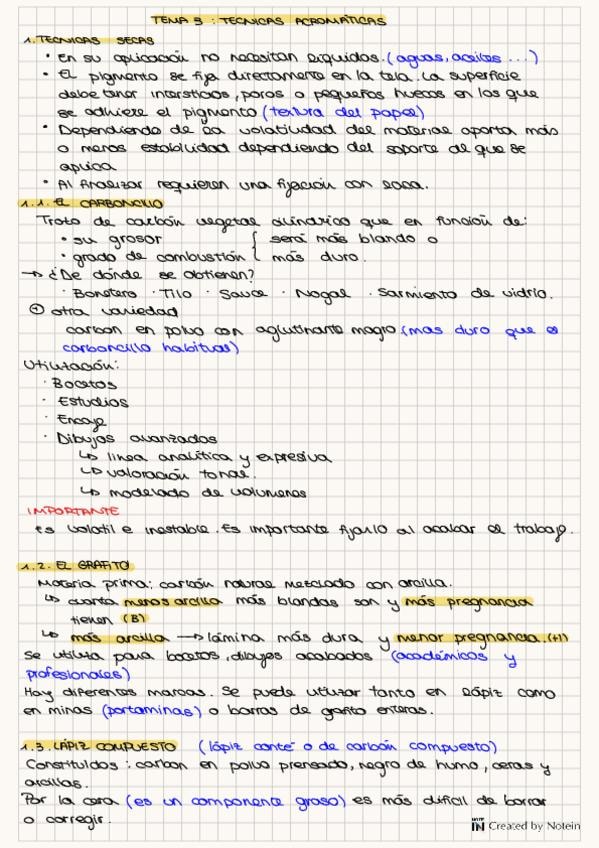 TEMA 3: TECNICAS ACROMÁTICAS
1. TECNICAS SECAS
• En su aplicación no necesitan líquidos. (aguas, aceites ...)
• El pigmento se fija directamente en la tela. La superficie
debe tener intersticios, poros o pequeños huecos en los que
se adhiere el pigmento (textura del papel)
• Dependiendo de la volatilidad del material aporta más
o menos estabilidad dependiendo del soporte al que se
aplica
• Al finalizar requieren una fijación con laca.
1.1. EL CARBONCILLO
Trozo de carbón vegetal cilíndrico que en función de:
• su grosor { será más blando o
• grado de combustión más duro.
→ ¿De dónde se obtienen?
· Bonetero · Tilo · Sauce · Nogal · Sarmiento de vidrio.
+ otra variedad
carbon en polvo con aglutinante magro (mas duro que el
carboncillo habitual)
Utilización:
· Bocetos
· Estudios
· Encaje
· Dibujos avanzados
↳ linea analítica y expresiva
↳ valoración tonal.
↳ modelado de volumenes
IMPORTANTE
Es volatil e inestable. Es importante fijarlo al acabar el trabajo.
1.2. EL GRAFITO
Materia prima: carbón natural mezclado con arcilla.
↳ cuanta menos arcilla más blandas son y más pregnancia
tienen (B)
↳ más arcilla → lámina más dura y menor pregnancia. (H)
Se utiliza para bocetos, dibujos acabados (académicos y
profesionales)
Hay diferentes marcas. Se puede utilizar tanto en lápiz como
en minas (portaminas) o barras de grafito enteras.
1.3. LÁPIZ COMPUESTO (lápiz conté o de carbón compuesto)
Constituidos: carbon en polvo prensado, negro de humo, ceras y
arcillas.
Por la cera (es un componente graso) es más difícil de borrar
o corregir.
Created by Notein